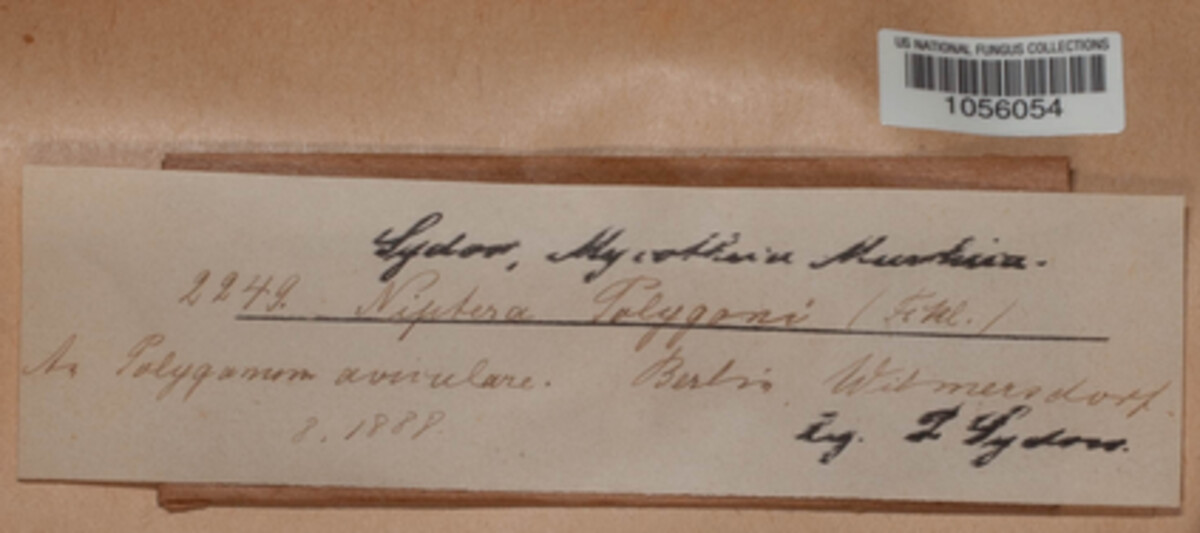 US NATIONAL FUNGUS COLLECTIONS
1056054
Sydow, Mycotheca Marchica.
2249. Niptera Polygoni (Fckl.)
An Polygonum aviculare. Berlin, Wilmersdorf.
8. 1888.
lg. P. Sydow.